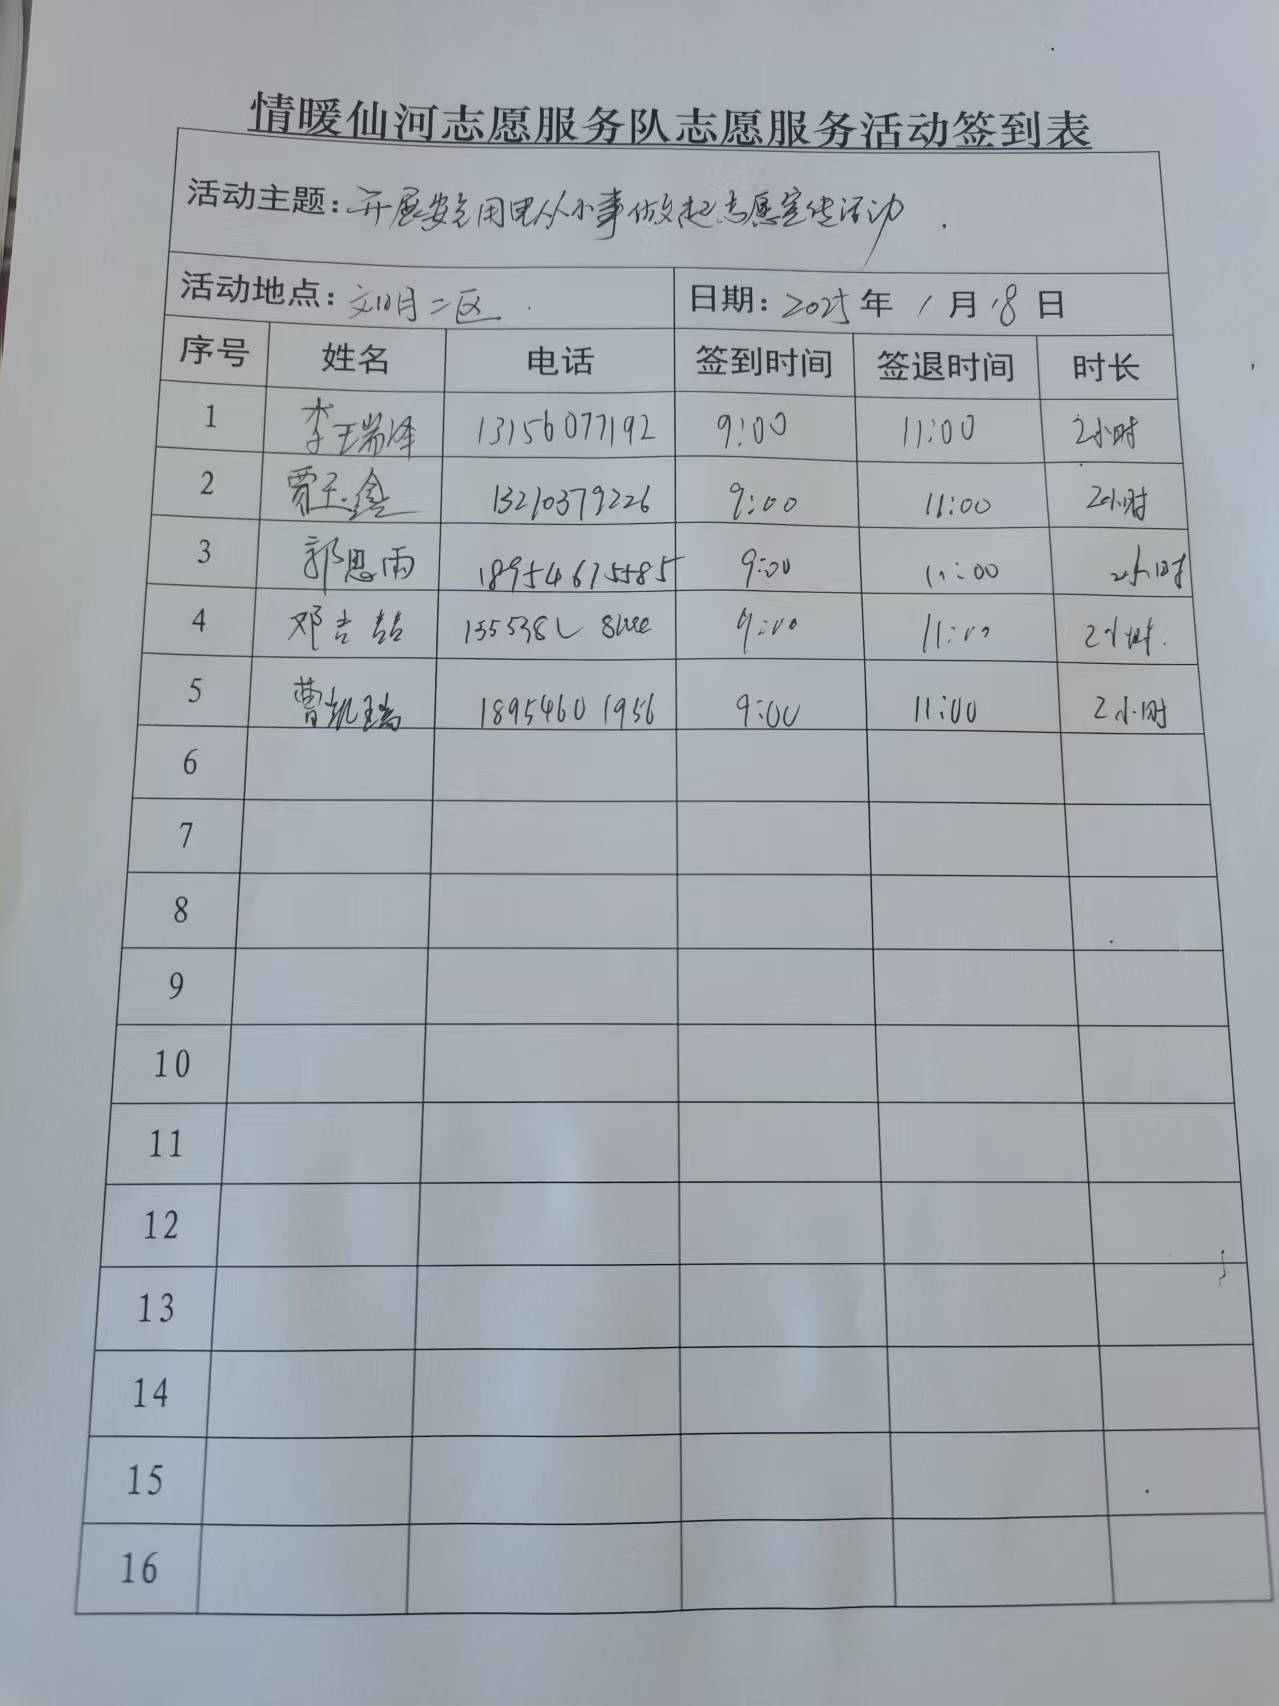 情暖仙河志愿服务队志愿服务活动签到表
活动主题：开展安全用电从小事做起志愿宣传活动
活动地点：文明二区 日期：2025年1月18日
序号 姓名 电话 签到时间 签退时间 时长
1 李瑞泽 13156077192 9:00 11:00 2小时
2 贾玉鑫 13210379226 9:00 11:00 2小时
3 郭思雨 18954615585 9:00 11:00 2小时
4 邓吉喆 9:00 11:00 2小时
5 曹凯瑞 18954601956 9:00 11:00 2小时
6
7
8
9
10
11
12
13
14
15
16